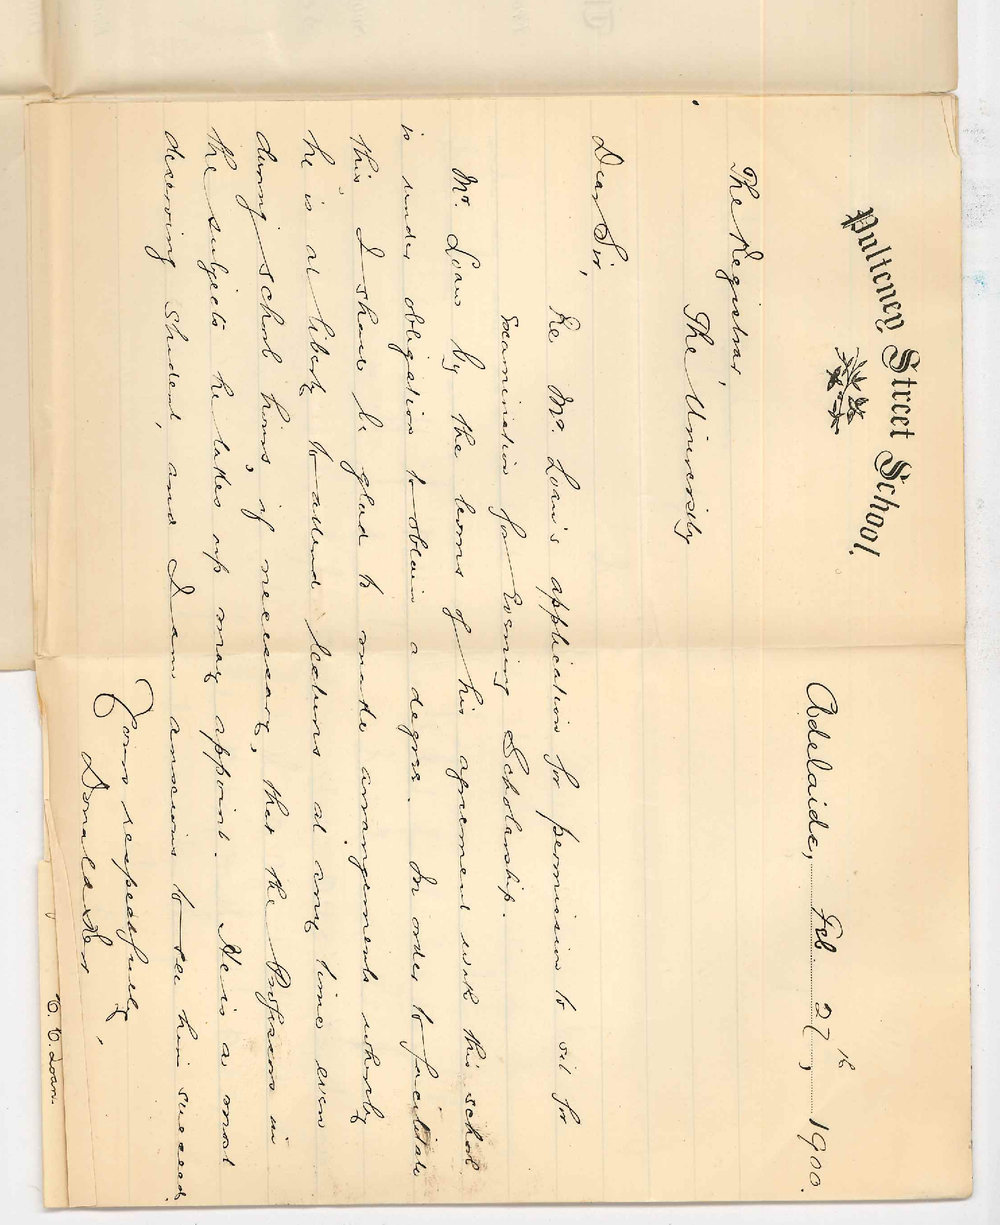 Pulteney Street School.
Adelaide, Feb 27th, 1900.
The Registrar,
The University
Dear Sir,
Re Mr. Loan's application for permission to sit for
Examination for Evening Scholarship.
Mr. Loan by the terms of his agreement with this school
is under obligation to obtain a degree. In order to facilitate
this I shall be glad to make arrangements whereby
he is at liberty to attend lectures at any time even
during school hours, if necessary, that the Professors in
the subjects he takes up may appoint. He is a most
deserving student, and I am anxious to see him succeed.
Yours respectfully,
Donald Kerr
C. C. Loan.